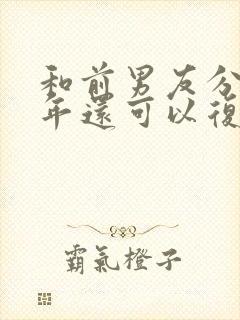 和前男友分
年還可以復
霸氣橙子